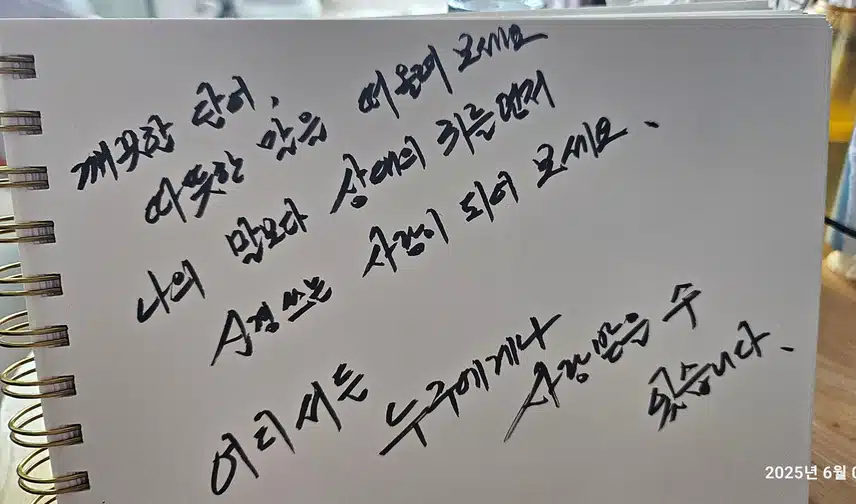 깨끗한 단어,
따뜻한 말을 떠올려 보세요
나의 말보다 상대의 귀를 먼저
신경 쓰는 사람이 되어 보세요.
어디서든
누구에게나
사랑받을 수
있습니다.
2025년 6월